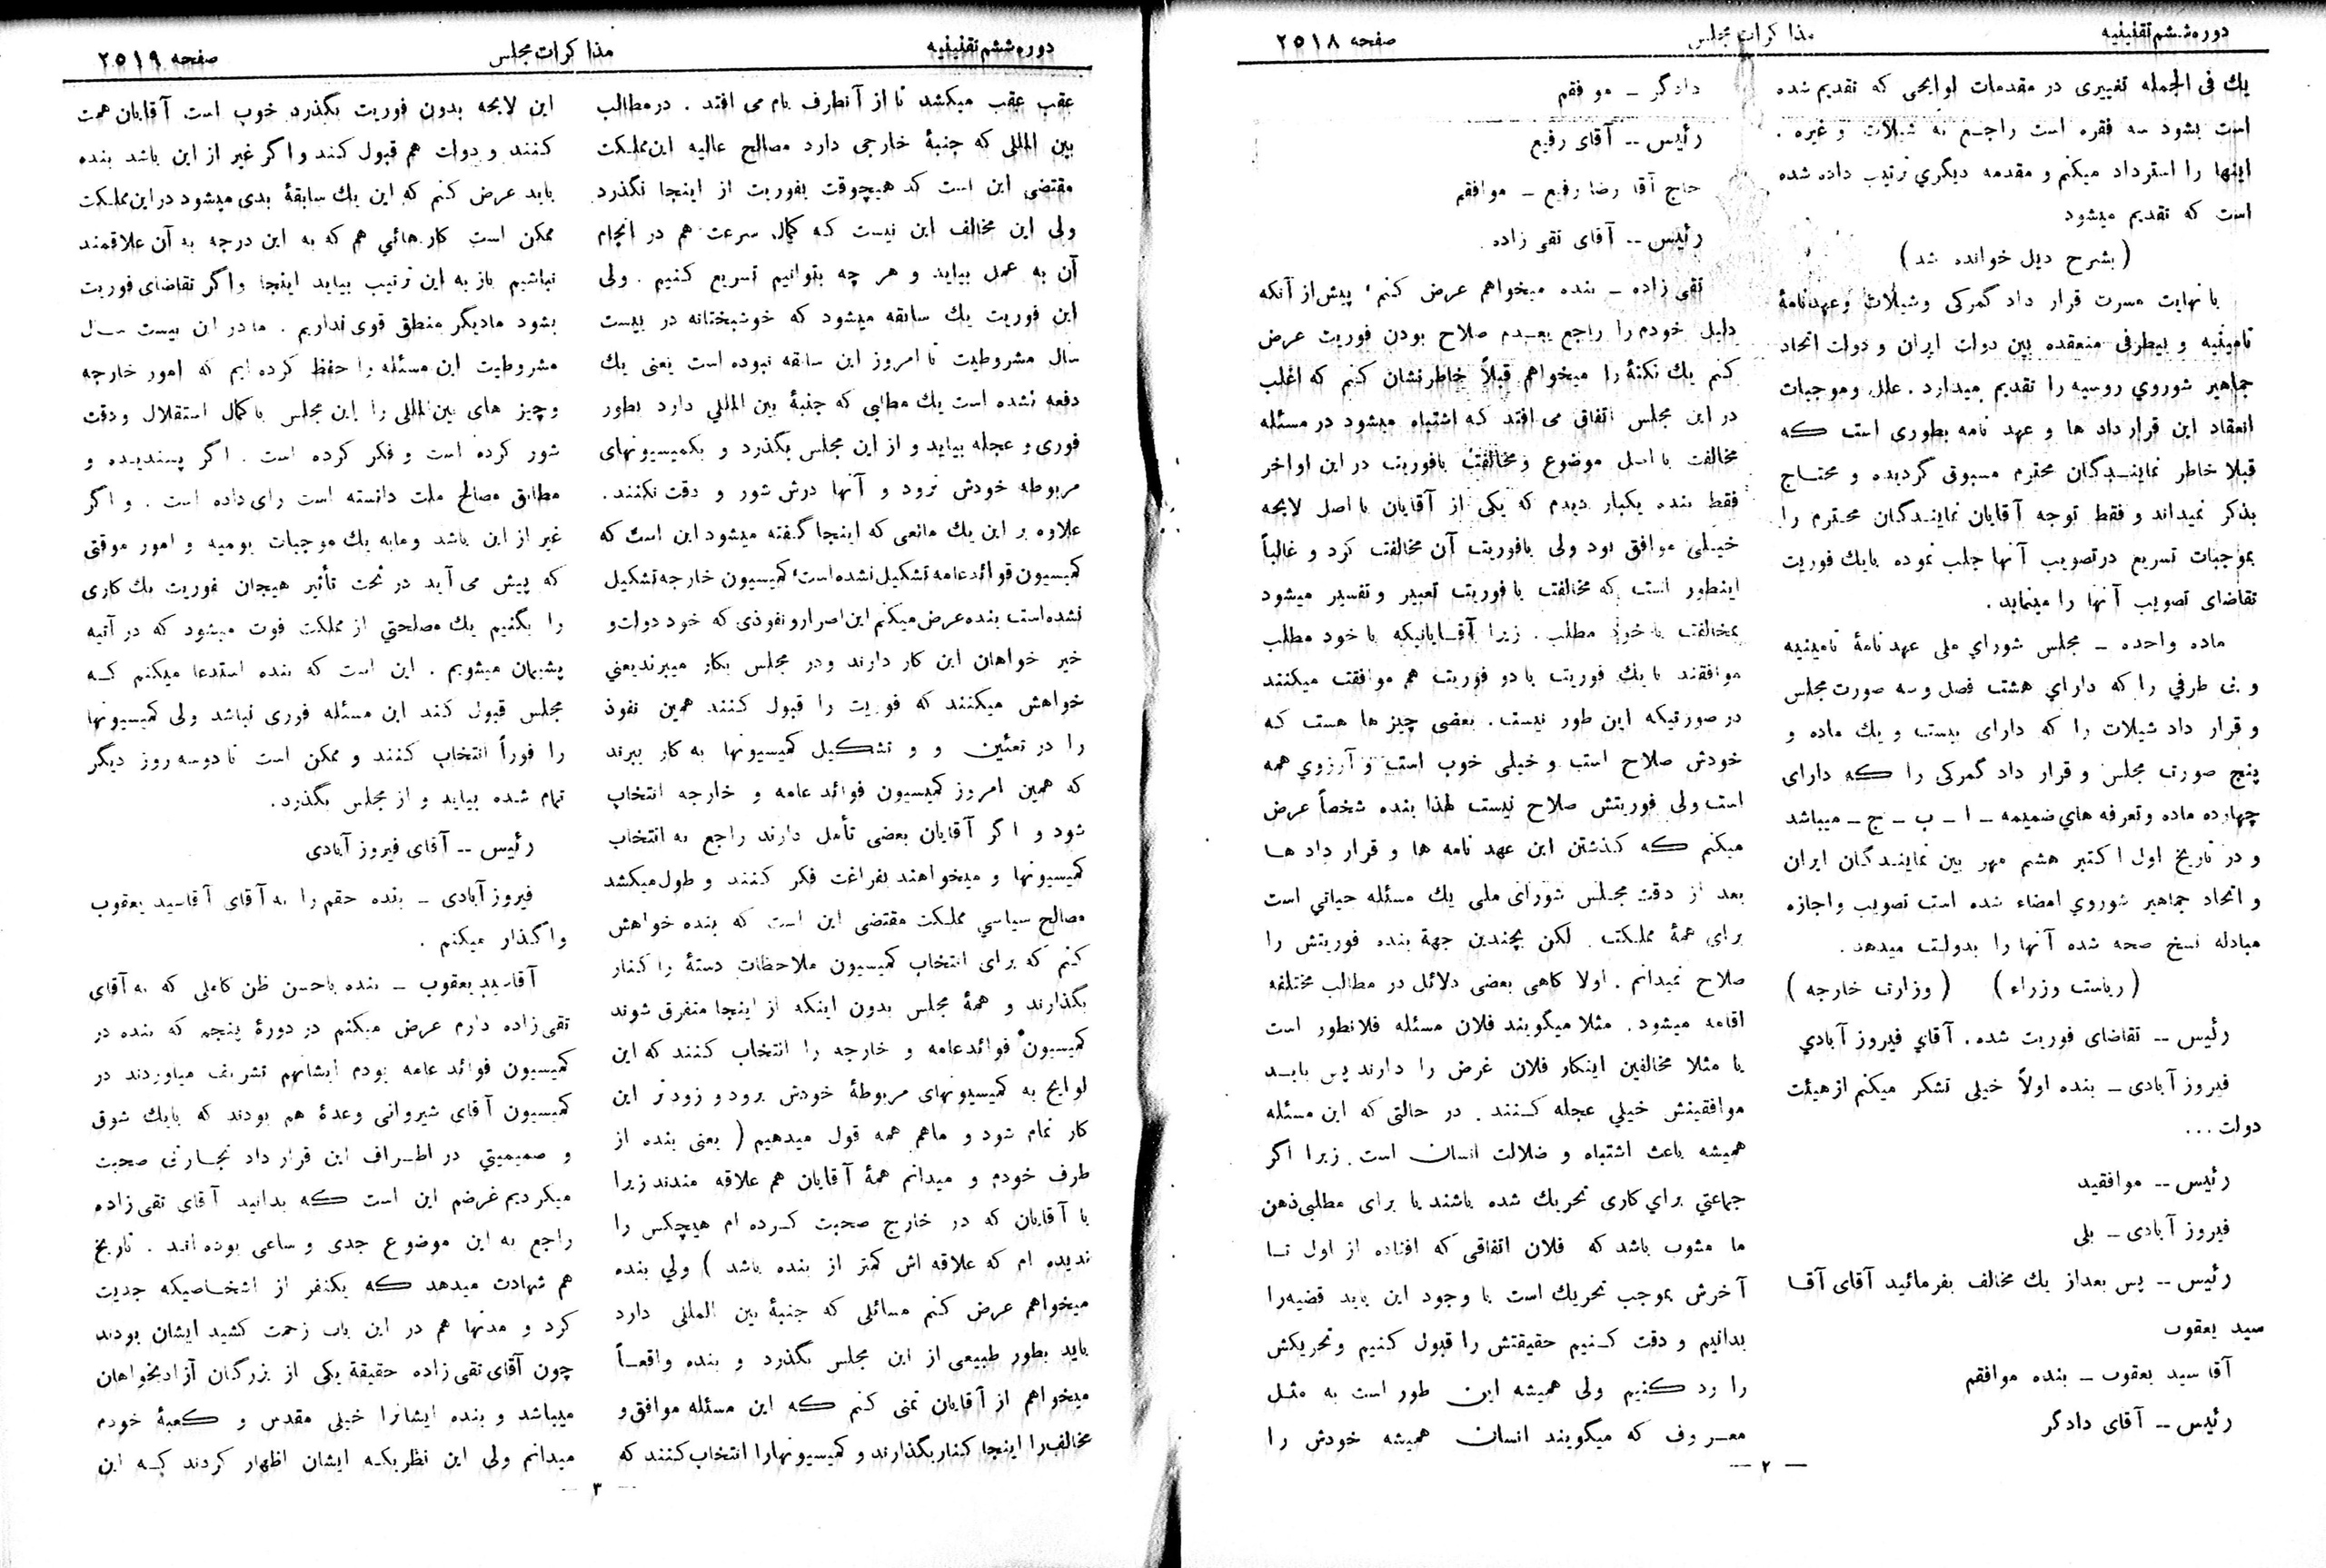 دوره ششم تقنینیه
مذاکرات مجلس
صفحه ۲۵۱۸
یك فی الجمله تغییری در مقدمات لوایحی که تقدیم شده
است بشود سه فقره است راجع به شیلات و غیره .
اینها را استرداد میکنم و مقدمه دیگري ترتیب داده شده
است که تقدیم میشود
( بشرح ذیل خوانده شد )
با نهایت مسرت قرار داد گمرکی و شیلات و عهدنامهٔ
تامینیه و بیطرفی منعقده بین دولت ایران و دولت اتحاد
جماهیر شوروي روسیه را تقدیم میدارد . علل و موجبات
انعقاد این قرار داد ها و عهد نامه بطوری است که
قبلا خاطر نمایندگان محترم مسبوق گردیده و محتاج
بذکر نمیداند و فقط توجه آقایان نمایندگان محترم را
بموجبات تسریع در تصویب آنها جلب نموده بایك فوریت
تقاضای تصویب آنها را مینماید .
ماده واحده ـ مجلس شورای ملی عهد نامهٔ تامینیه
و بی طرفي را که دارای هشت فصل و سه صورت مجلس
و قرار داد شیلات را که دارای بیست و یك ماده و
پنج صورت مجلس و قرار داد گمرکی را که دارای
چهارده ماده و تعرفه هاي ضمیمه ـ ا ـ ب ـ ج ـ میباشد
و در تاریخ اول اکتبر هشم مهر بین نمایندگان ایران
و اتحاد جماهیر شوروي امضاء شده است تصویب و اجازه
مبادله نسخ صحه شده آنها را بدولت میدهد .
( ریاست وزراء ) ( وزارت خارجه )
رئیس -- تقاضای فوریت شده . آقاي فیروز آبادي
فیروز آبادی ـ بنده اولاً خیلی تشکر میکنم از هیئت
دولت ...
رئیس -- موافقید
فیروز آبادی ـ بلی
رئیس -- پس بعداز یك مخالف بفرمائید آقای آقا
سید یعقوب
آقا سید یعقوب ـ بنده موافقم
رئیس -- آقای دادگر
دادگر ـ موافقم
رئیس -- آقای رفیع
حاج آقا رضا رفیع ـ موافقم
رئیس -- آقای تقی زاده .
تقی زاده ـ بنده میخواهم عرض کنم ، پیش از آنکه
دلیل خودم را راجع بعدم صلاح بودن فوریت عرض
کنم یك نکتهٔ را میخواهم قبلاً خاطر نشان کنم که اغلب
در این مجلس اتفاق می افتد که اشتباه میشود در مسئله
مخالفت با اصل موضوع و مخالفت با فوریت در این اواخر
فقط بنده یکبار دیدم که یکی از آقایان با اصل لایحه
خیلی موافق بود ولی با فوریت آن مخالفت کرد و غالباً
اینطور است که مخالفت با فوریت تعبیر و تفسیر میشود
بمخالفت با خود مطلب . زیرا آقایانیکه با خود مطلب
موافقند با یك فوریت با دو فوریت هم موافقت میکنند
در صورتیکه این طور نیست . بعضی چیز ها هست که
خودش صلاح است و خیلی خوب است و آرزوي همه
است ولی فوریتش صلاح نیست لهذا بنده شخصاً عرض
میکنم که گذشتن این عهد نامه ها و قرار داد ها
بعد از دقت مجلس شورای ملی یك مسئله حیاتی است
برای همهٔ مملکت . لکن بچندین جهة بنده فوریتش را
صلاح نمیدانم . اولا گاهی بعضی دلائل در مطالب مختلفه
اقامه میشود . مثلا میگویند فلان مسئله فلانطور است
یا مثلا مخالفین اینکار فلان غرض را دارند پس باید
موافقینش خیلي عجله کنند . در حالتی که این مسئله
همیشه باعث اشتباه و ضلالت انسان است . زیرا اگر
جماعتي براي کاری تحریك شده باشند یا برای مطلبی ذهن
ما مشوب باشد که فلان اتفاقی که افتاده از اول تا
آخرش بموجب تحریك است با وجود این باید قضیه را
بدانیم و دقت کنیم حقیقتش را قبول کنیم و تحریکش
را رد کنیم ولی همیشه این طور است به مثل
معروف که میگویند انسان همیشه خودش را
— ۲ —
دوره ششم تقنینیه
مذاکرات مجلس
صفحه ۲۵۱۹
عقب عقب میکشد تا از آنطرف بام می افتد . در مطالب
بین المللی که جنبهٔ خارجی دارد مصالح عالیه این مملکت
مقتضی این است که هیچوقت بفوریت از اینجا نگذرد
ولی این مخالف این نیست که کمال سرعت هم در انجام
آن به عمل بیاید و هر چه بتوانیم تسریع کنیم . ولی
این فوریت یك سابقه میشود که خوشبختانه در بیست
سال مشروطیت تا امروز این سابقه نبوده است یعنی یك
دفعه نشده است یك مطالبی که جنبهٔ بین المللي دارد بطور
فوری و عجله بیاید و از این مجلس بگذرد و بکمیسیونهای
مربوطه خودش نرود و آنها درش شور و دقت نکنند .
علاوه بر این یك مانعی که اینجا گفته میشود این است که
کمیسیون فوائد عامه تشکیل نشده است ، کمیسیون خارجه تشکیل
نشده است بنده عرض میکنم این اصرار و نفوذی که خود دولت و
خیر خواهان این کار دارند و در مجلس بکار میبرند یعني
خواهش میکنند که فوریت را قبول کنند همین نفوذ
را در تعئین و و تشکیل کمیسیونها به کار ببرند
که همین امروز کمیسیون فوائد عامه و خارجه انتخاب
شود و اگر آقایان بعضی تأمل دارند راجع به انتخاب
کمیسیونها و میخواهند بفراغت فکر کنند و طول میکشد
مصالح سیاسي مملکت مقتضی این است که بنده خواهش
کنم که برای انتخاب کمیسیون ملاحظات دستهٔ را کنار
بگذارند و همهٔ مجلس بدون اینکه از اینجا متفرق شوند
کمیسیون فوائد عامه و خارجه را انتخاب کنند که این
لوایح به کمیسیونهای مربوطهٔ خودش برود و زودتر این
کار تمام شود و ماهم همه قول میدهیم ( یعنی بنده از
طرف خودم و میدانم همهٔ آقایان هم علاقه مندند زیرا
با آقایان که در خارج صحبت کرده ام هیچکس را
ندیده ام که علاقه اش کمتر از بنده باشد ) ولي بنده
میخواهم عرض کنم مسائلی که جنبهٔ بین المللی دارد
باید بطور طبیعی از این مجلس بگذرد و بنده واقعاً
میخواهم از آقایان تمنی کنم که این مسئله موافق و
مخالف را اینجا کنار بگذارند و کمیسیونها را انتخاب کنند که
این لایحه بدون فوریت بگذرد خوب است آقایان همت
کنند و دولت هم قبول کند و اگر غیر از این باشد بنده
باید عرض کنم که این یك سابقهٔ بدی میشود در این مملکت
ممکن است کارهائي هم که به این درجه به آن علاقمند
نباشیم باز به این ترتیب بیاید اینجا و اگر تقاضای فوریت
بشود مادیگر منطق قوی نداریم . ما در این بیست سال
مشروطیت این مسئله را حفظ کرده ایم که امور خارجه
و چیز های بین المللی را این مجلس با کمال استقلال و دقت
شور کرده است و فکر کرده است . اگر پسندیده و
مطابق مصالح ملت دانسته است رای داده است . و اگر
غیر از این باشد و ما به یك موجبات یومیه و امور موقتی
که پیش می آید در تحت تأثیر هیجان فوریت یك کاری
را بکنیم یك مصلحتي از مملکت فوت میشود که در آتیه
پشیمان میشویم . این است که بنده استدعا میکنم که
مجلس قبول کند این مسئله فوری نباشد ولی کمیسیونها
را فوراً انتخاب کنند و ممکن است تا دو سه روز دیگر
تمام شده بیاید و از مجلس بگذرد .
رئیس -- آقای فیروز آبادی
فیروز آبادی ـ بنده حقم را به آقای آقاسید یعقوب
واگذار میکنم .
آقاسید یعقوب ـ بنده باحسن ظن کاملی که به آقای
تقی زاده دارم عرض میکنم در دورهٔ پنجم که بنده در
کمیسیون فوائد عامه بودم ایشانهم تشریف میاوردند در
کمیسیون آقای شیروانی وعدهٔ هم بودند که بایك شوق
و صمیمیتي در اطراف این قرار داد تجارتی صحبت
میکردیم غرضم این است که بدانید آقای تقی زاده
راجع به این موضوع جدی و ساعی بوده اند . تاریخ
هم شهادت میدهد که یکنفر از اشخاصیکه جدیت
کرد و مدتها هم در این باب زحمت کشید ایشان بودند
چون آقای تقی زاده حقیقة یکی از بزرگان آزادیخواهان
میباشد و بنده ایشانرا خیلی مقدس و کعبهٔ خودم
میدانم ولی این نظریکه ایشان اظهار کردند که این
— ۳ —